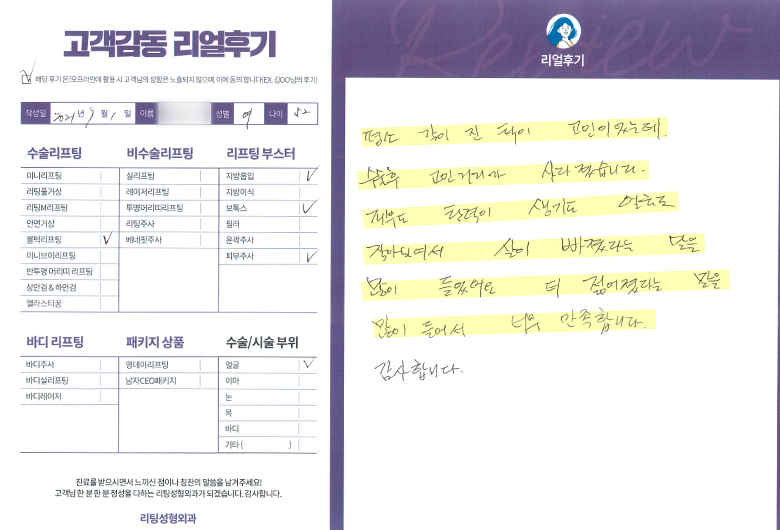 고객감동 리얼후기
해당 후기 온/오프라인에 활용 시 고객님의 성함은 노출되지 않으며, 이에 동의 합니다(EX. 김OO님의 후기)
작성일 2021년 9월 1일 이름 성별 여 나이 52
수술리프팅
미니리프팅
리팅풀거상
리팅M리프팅
안면거상
볼턱리프팅
미니브이리프팅
반투명 머리띠 리프팅
상안검 & 하안검
엘라스티꿈
비수술리프팅
실리프팅
레이저리프팅
투명머리띠리프팅
리팅주사
베네핏주사
리프팅 부스터
지방흡입
지방이식
보톡스
필러
윤곽주사
피부주사
바디 리프팅
바디주사
바디실리프팅
바디레이저
패키지 상품
영데이리프팅
남자CEO패키지
수술/시술 부위
얼굴
이마
눈
목
바디
기타 ( )
진료를 받으시면서 느끼신 점이나 칭찬의 말씀을 남겨주세요!
고객님 한 분 한 분 정성을 다하는 리팅성형외과가 되겠습니다. 감사합니다.
리팅성형외과
Review
리얼후기
평소 각이 진 턱이 고민이었는데.
수술후 고민거리가 사라졌습니다.
피부도 탄력이 생기고 얼굴도
작아보여서 살이 빠졌다는 말을
많이 들었어요 더 젊어졌다는 말을
많이 들어서 너무 만족합니다.
감사합니다.